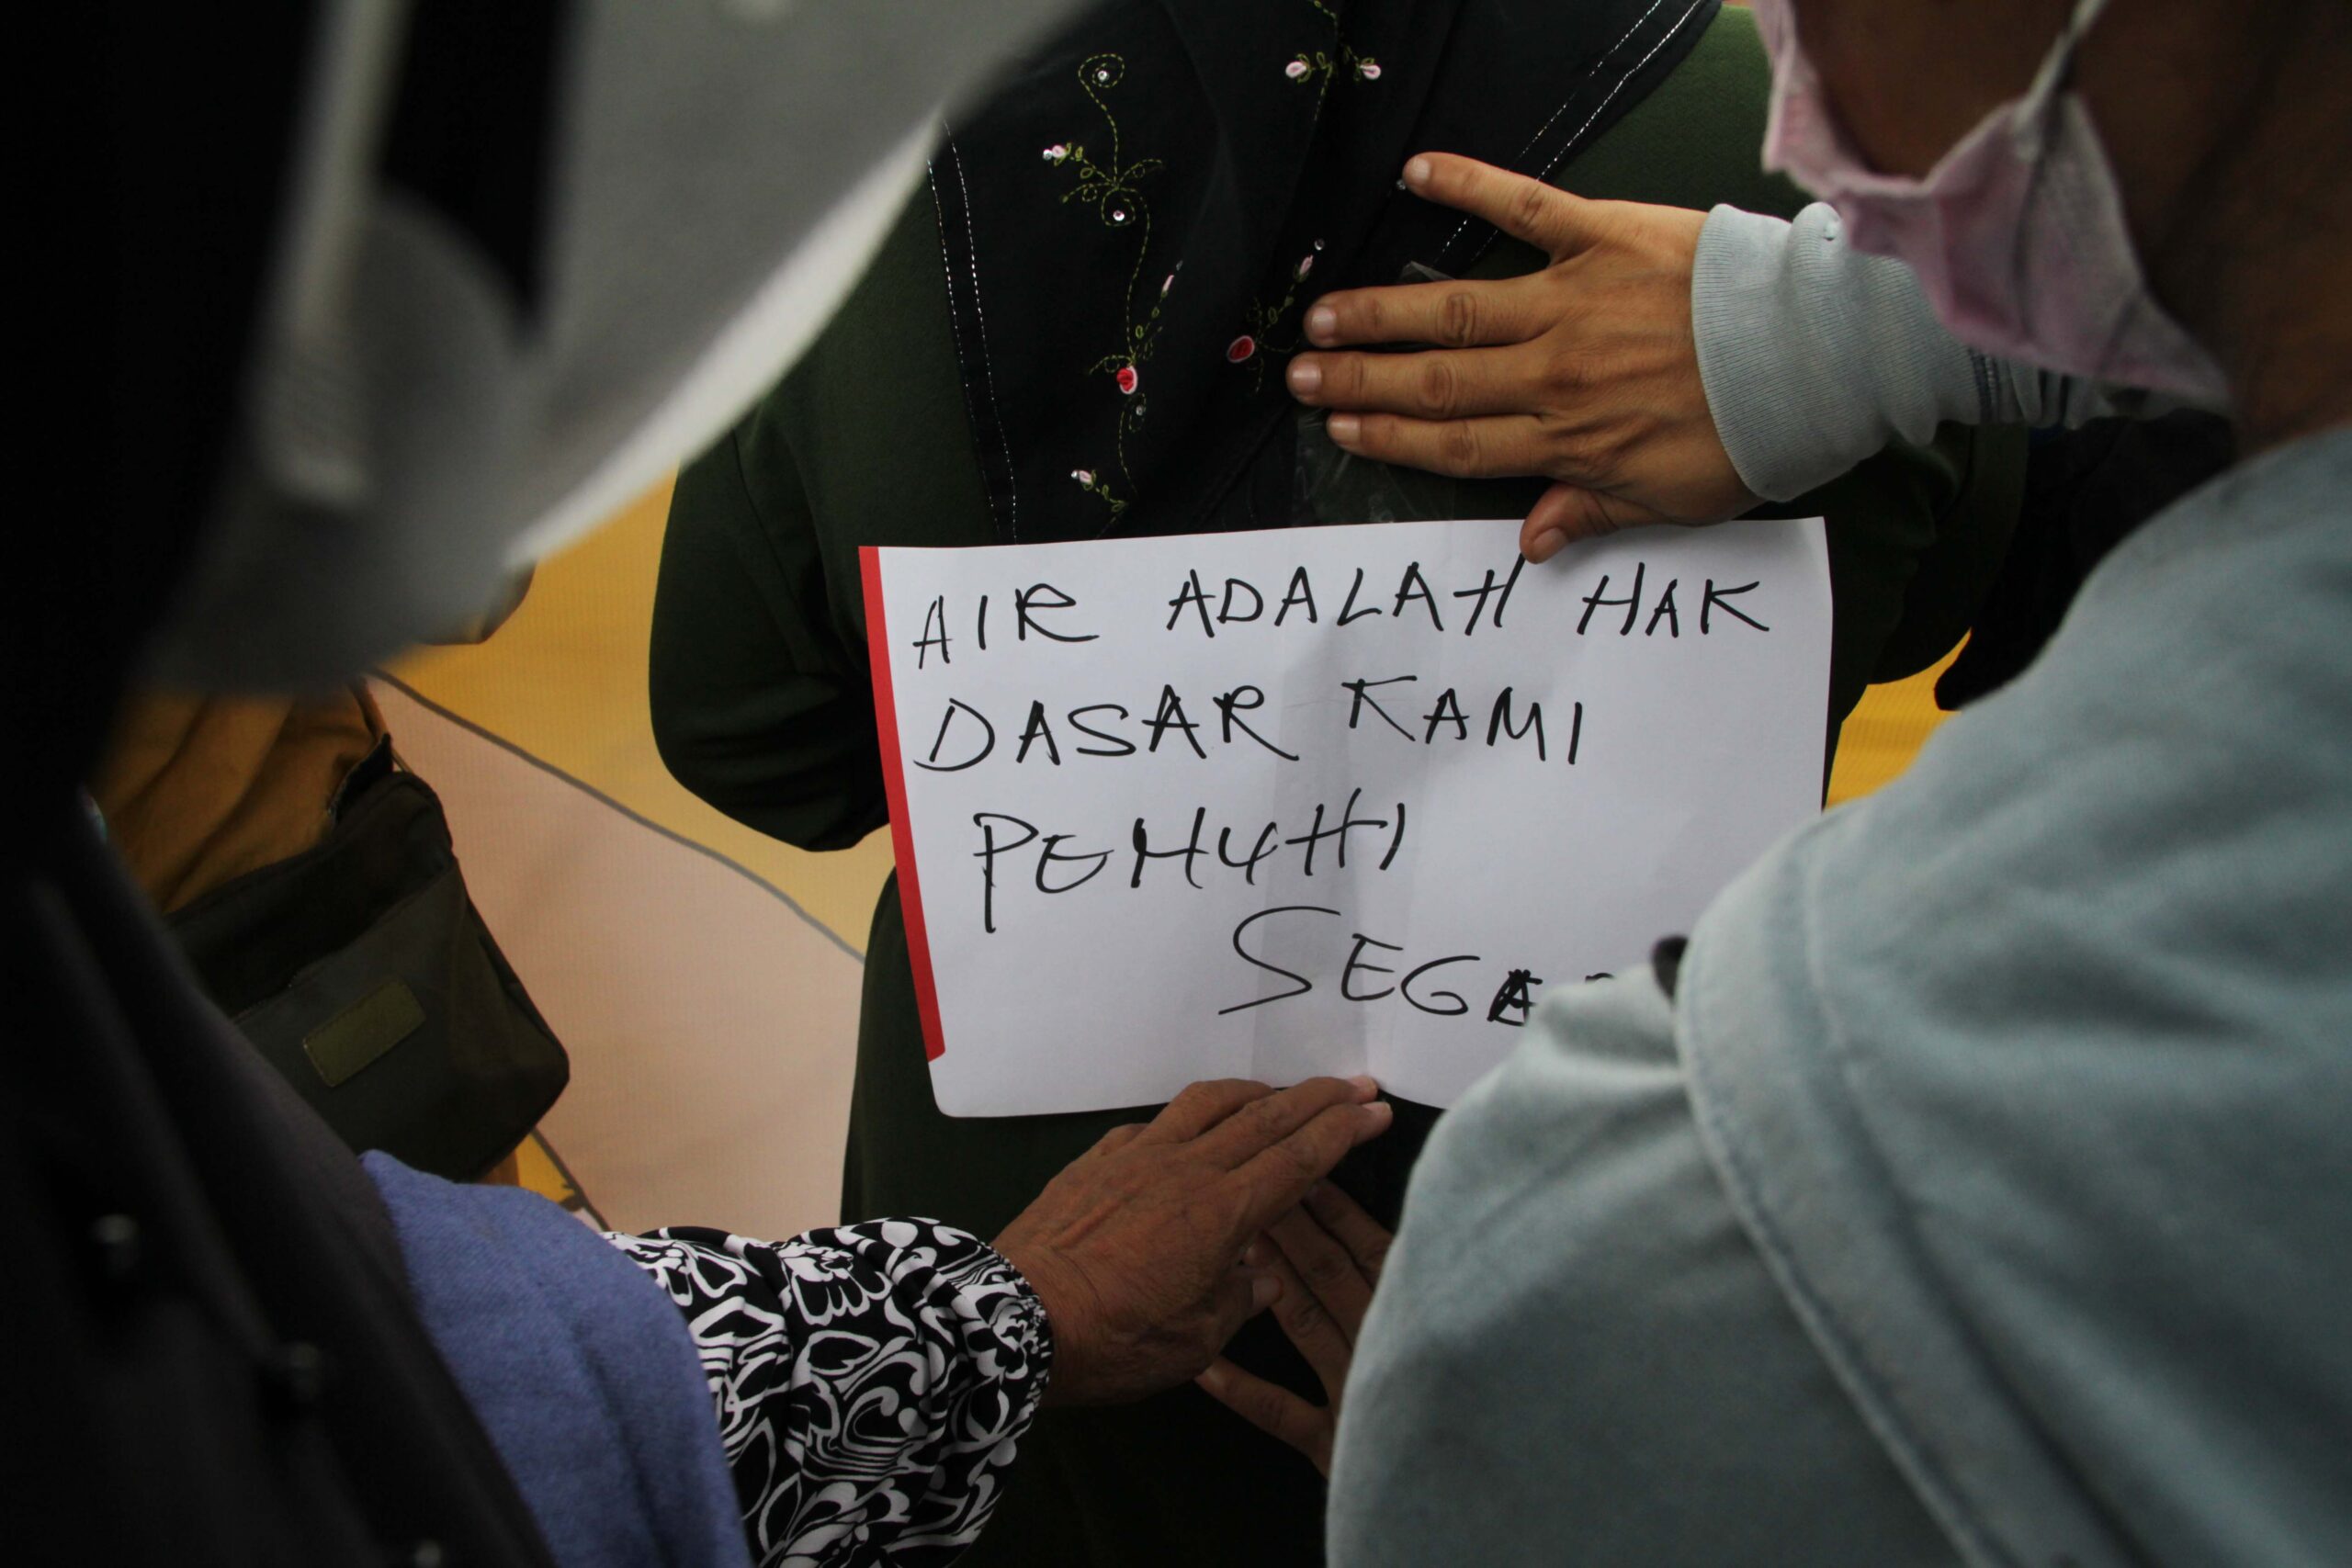 AIR ADALAH HAK
DASAR KAMI
PENUHI
SEGE